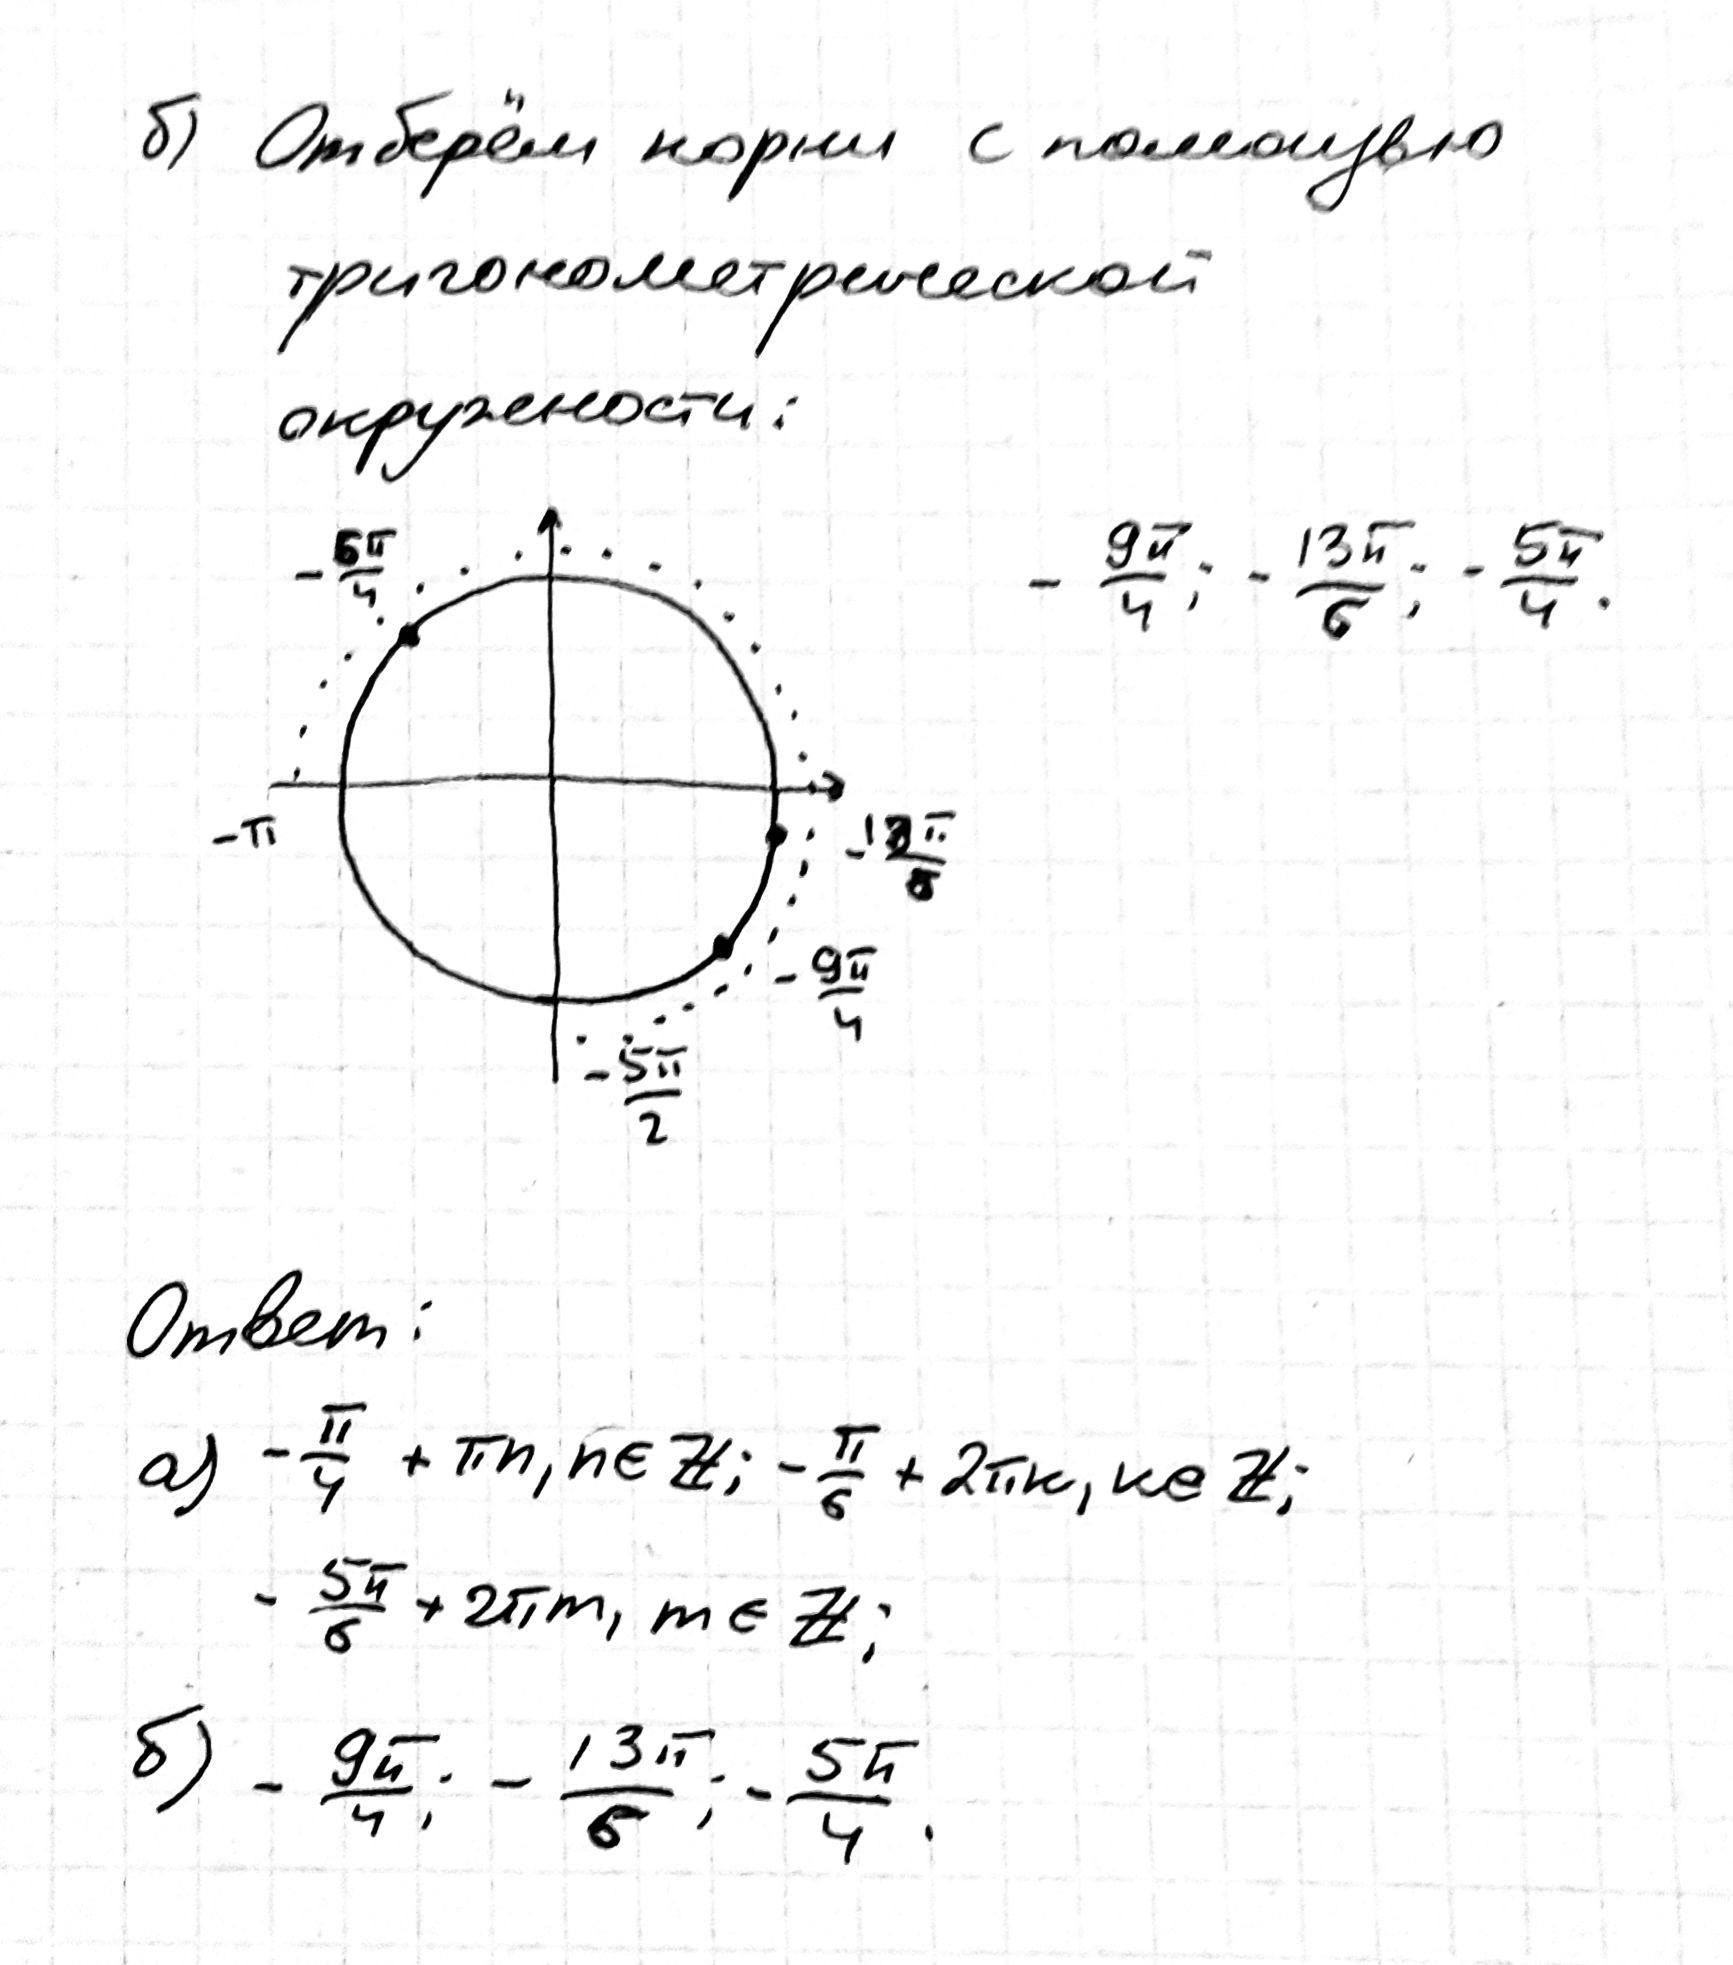 б) Отберём корни с помощью
тригонометрической
окружности:
-5π/4
-9π/4; -13π/6; -5π/4.
-π
-13π/6
-9π/4
-5π/2
Ответ:
а) -π/4 + πn, n∈ℤ; -π/6 + 2πк, к∈ℤ;
-5π/6 + 2πm, m∈ℤ;
б) -9π/4; -13π/6; -5π/4.